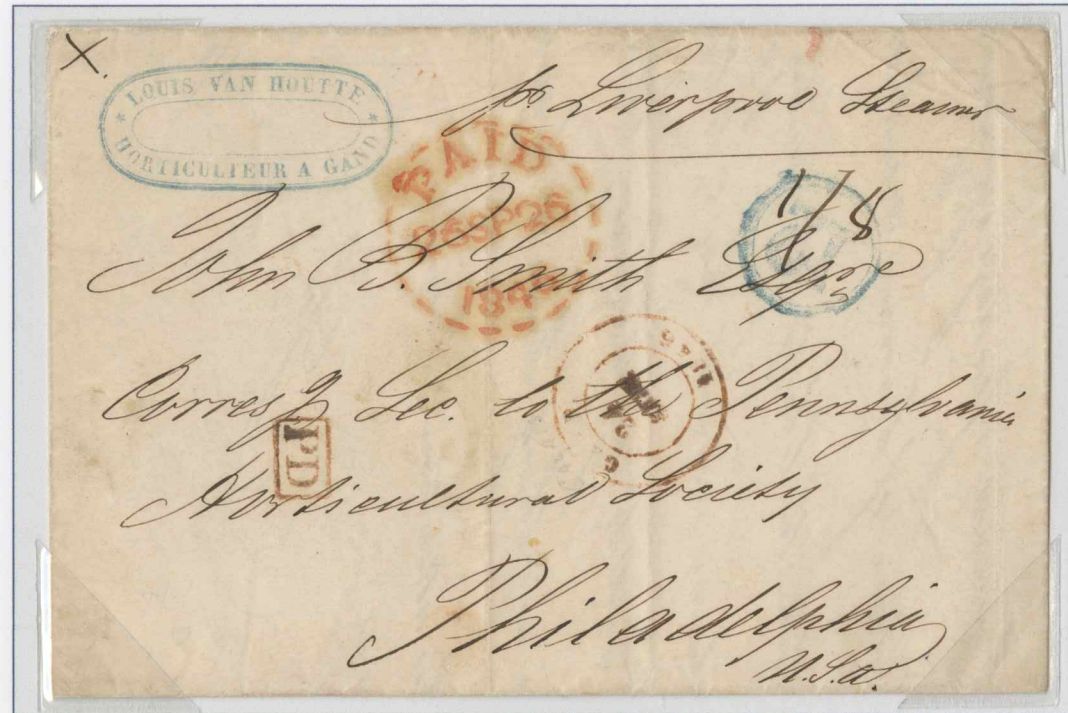 X.
LOUIS VAN HOUTTE
HORTICULTEUR A GAND
pr Liverpool Steamer
PAID
26SP26
184
1/8
John B. Smith Esqre
Corresg Sec. to the Pennsylvania
PD
Horticultural Society
Philadelphia
U.S.a.